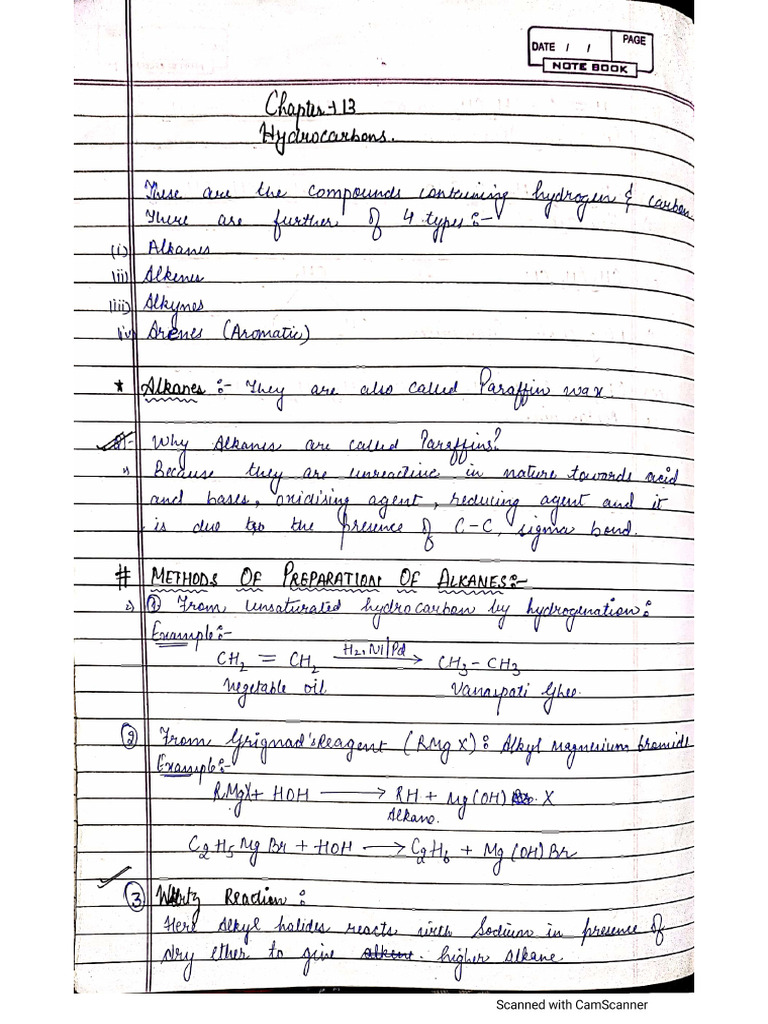 DATE / / PAGE
NOTE BOOK
Chapter-13
Hydrocarbons.
These are the compounds containing hydrogen & carbon
There are further of 4 types:-
(i) Alkanes
(ii) Alkenes
(iii) Alkynes
(iv) Arenes (Aromatic)
* Alkanes :- They are also called Paraffin wax
Q:- Why Alkanes are called Paraffins?
Because they are unreactive in nature towards acid
and bases, oxidising agent, reducing agent and it
is due to the presence of C-C, sigma bond.
# METHODS OF PREPARATION OF ALKANES:-
① From unsaturated hydrocarbon by hydrogenation:
Example:-
CH2 = CH2 —H2, Ni/Pd→ CH3-CH3
Vegetable oil Vanaspati Ghee.
② From Grignad's Reagent (RMgX): Alkyl Magnesium bromide
Example:-
RMgX+ HOH → RH + Mg(OH) X
Alkane.
C2H5MgBr + HOH → C2H6 + Mg(OH)Br
③ Wurtz Reaction:
Here Alkyl halides reacts with Sodium in presence of
dry ether to give higher alkane.
Scanned with CamScanner